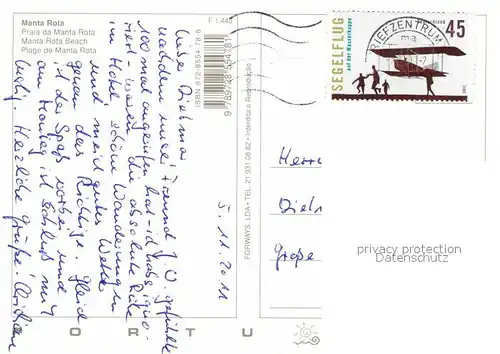 Manta Rota
Praia da Manta Rota
Manta Rota Beach
Plage de Manta Rota
F I.443
ISBN 972-8554-78-8
9 789728 554781
FORWAYS, LDA • TEL. 21 931 08 82 • Interdita a Reprodução
PORTU
SEGELFLUG
auf der Wasserkuppe
45
BRIEFZENTRUM
ma
Diet mar
nachdem unser Freund J. W. gefühlte
100 mal angerufen hat - ich hab's igno-
riert - die absolute Ruhe
im Hotel, schöne Wanderungen
und meist gutes Wetter
genau das Richtige. Gleich
ist der Spaß vorbei und
am Montag ist Schluß mit
lustig. Herzliche Grüße
5. 11. 2011
Herrn
Dietm
Große
privacy protection
Datenschutz